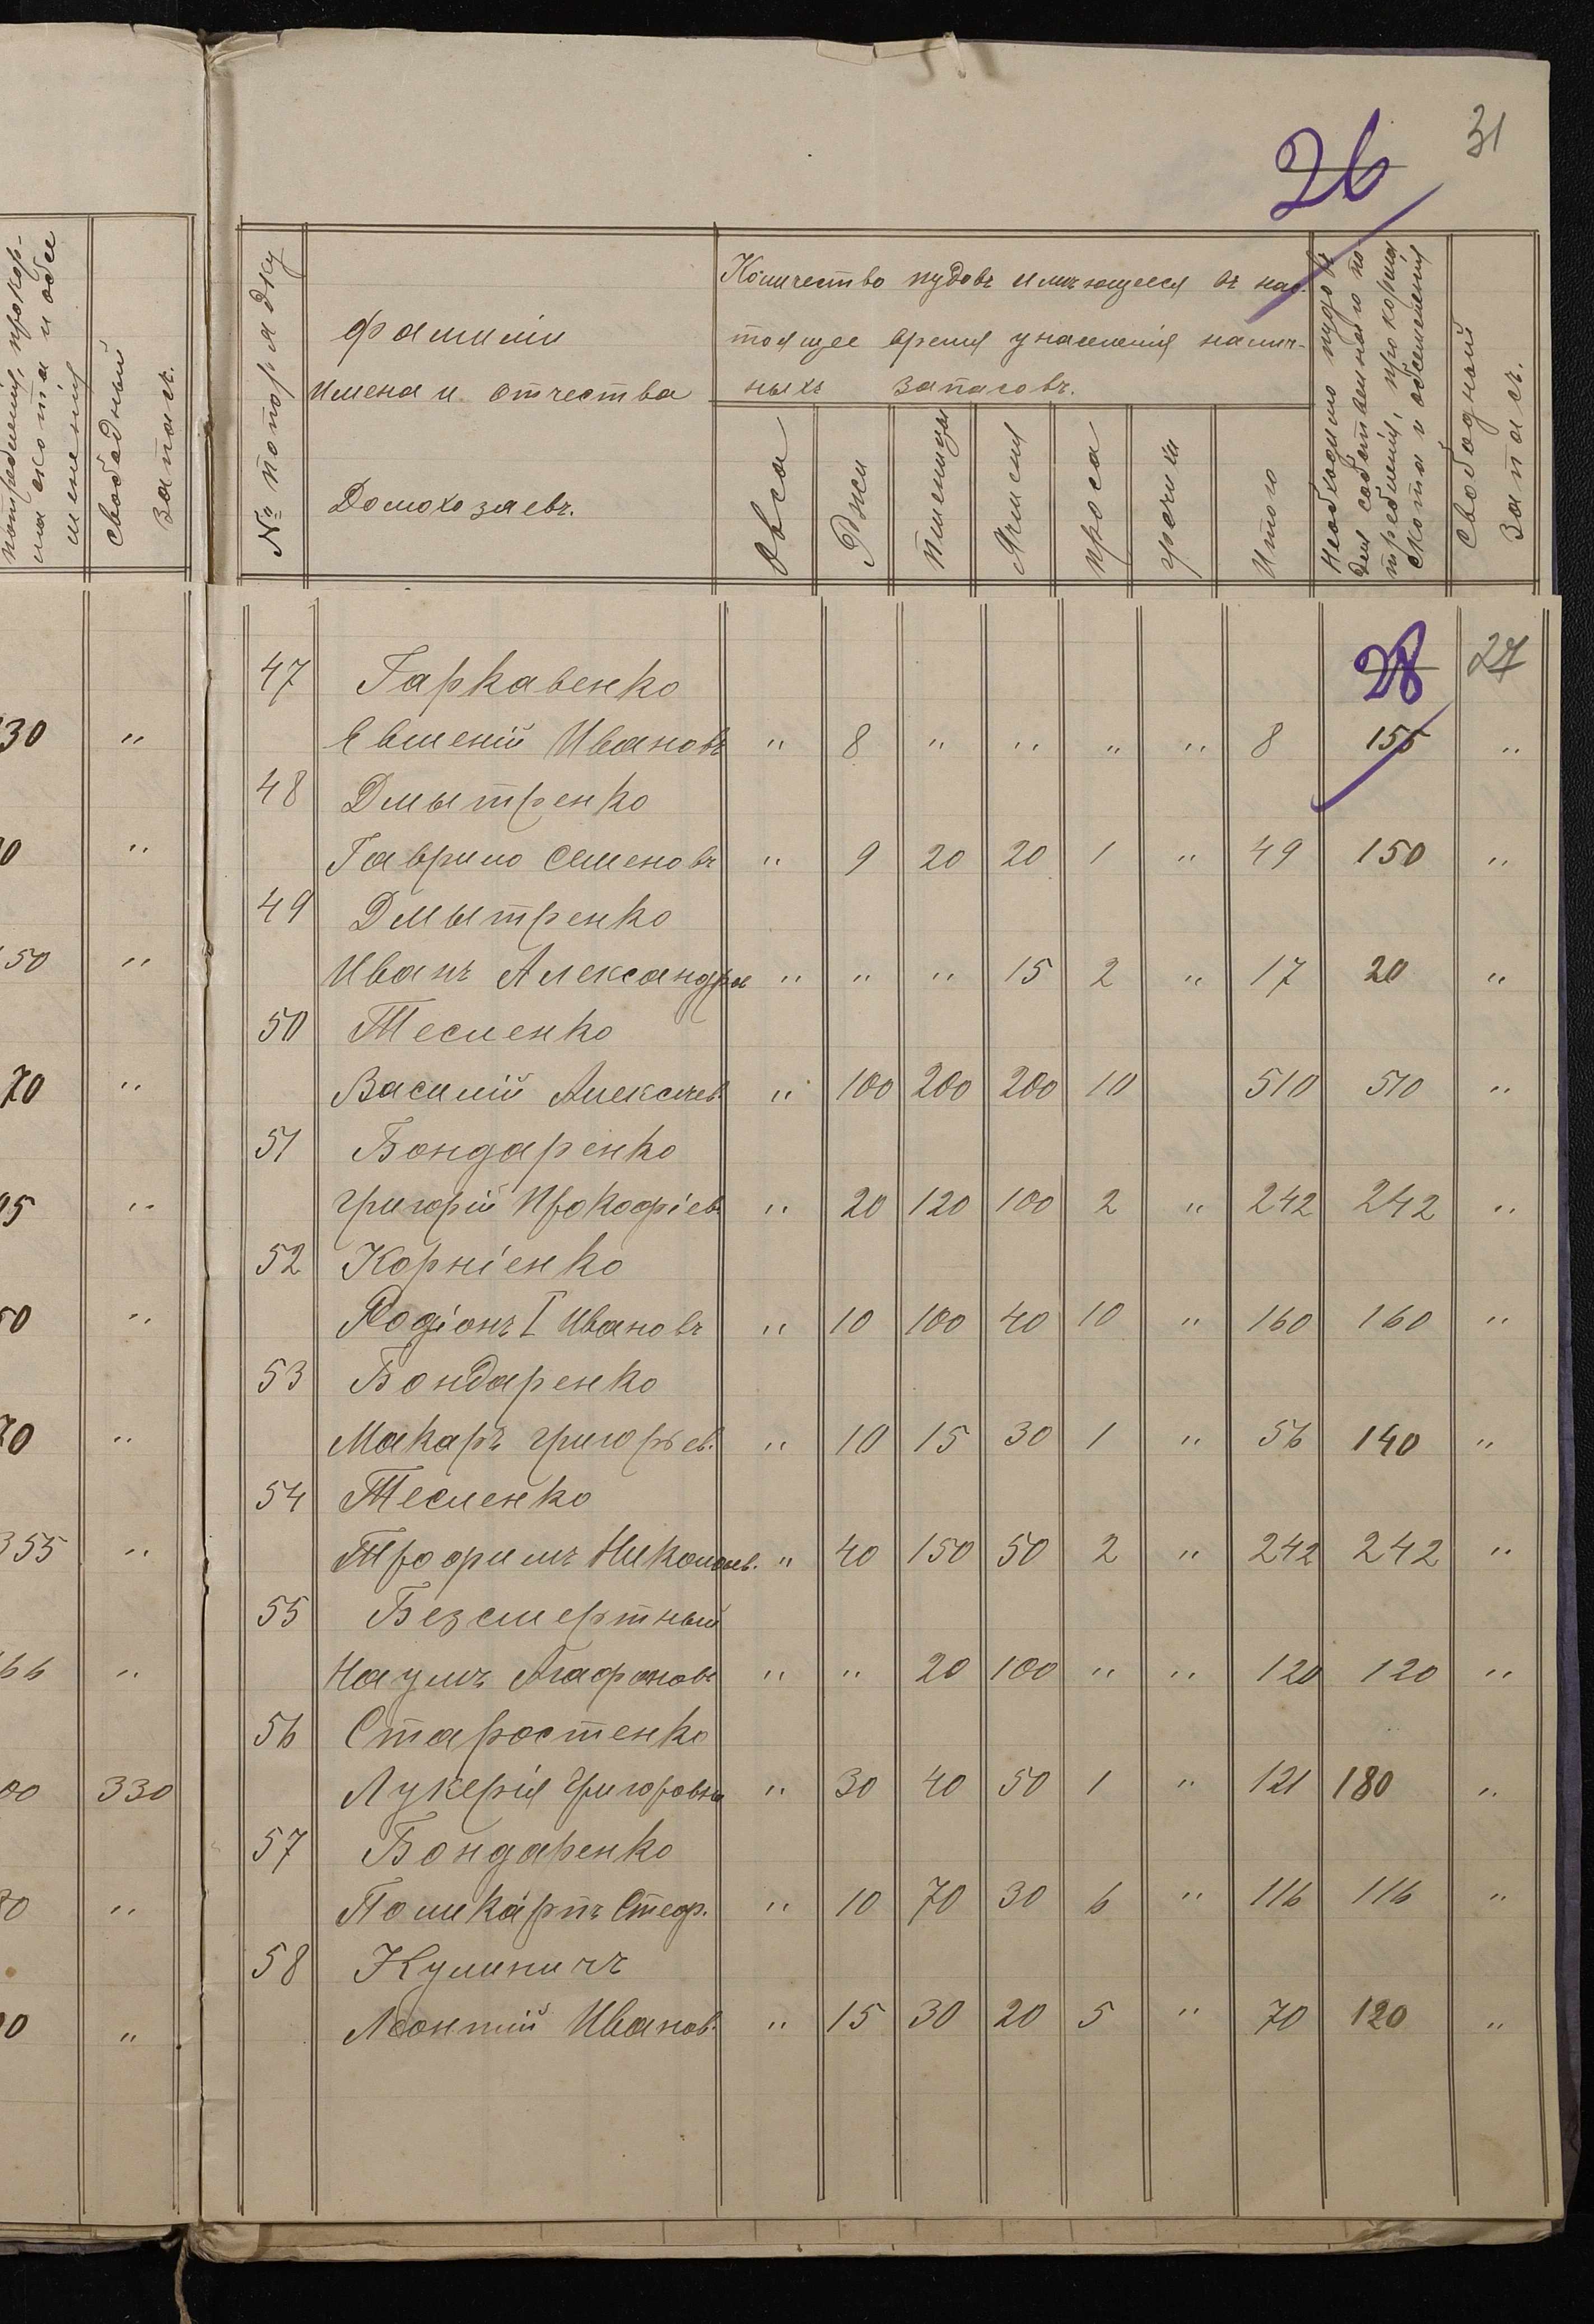 31
26
потребленія, прокор-
ма скота и обсе
мененія
Свободный
запасъ.
30 "
0 "
50 "
70 "
"
50 "
70 "
355 "
66 "
00 330
"
0 "
№ по порядку
фамиліи
имена и отчества
Домохозяевъ.
Количество пудовъ имѣющееся въ нас-
тоящее время у населенія налич-
ныхъ запасовъ.
Овса
Ржи
Пшеницы
Ячменя
проса
гречихи
Итого
Необходимо пудовъ
для собственнаго по
требленія, прокорма
скота и обсемененія
Свободный
запасъ.
28 27
47 Гаркавенко
Евменій Ивановъ " 8 " " " " 8 155 "
48 Дмытренко
Гаврило Семеновъ " 9 20 20 1 " 49 150 "
49 Дмытренко
Иванъ Александров " " " 15 2 " 17 20 "
50 Тесленко
Василій Алексѣев " 100 200 200 10 510 510 "
51 Бондаренко
Григорій Прокофіев " 20 120 100 2 " 242 242 "
52 Корніенко
Родіонъ I Ивановъ " 10 100 40 10 " 160 160 "
53 Бондаренко
Макаръ Григорьев. " 10 15 30 1 " 56 140 "
54 Тесленко
Трофимъ Николаев. " 40 150 50 2 " 242 242 "
55 Безсмертный
Наумъ Агафоновъ " " 20 100 " " 120 120 "
56 Старостенко
Лукерія Григоровна " 30 40 50 1 " 121 180 "
57 Бондаренко
Поликарпъ Стеф. " 10 70 30 6 " 116 116 "
58 Кулиничъ
Леонтій Иванов. " 15 30 20 5 " 70 120 "